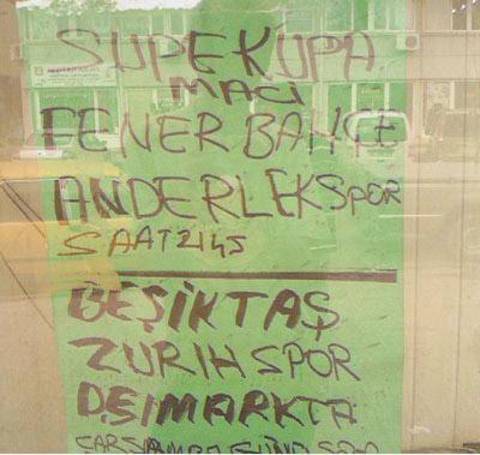 SUPEKUPA
MACI
FENER BAHÇE
ANDERLEKSPOR
SAAT 2145
BEŞİKTAŞ
ZURIH SPOR
DEŞMARKTA